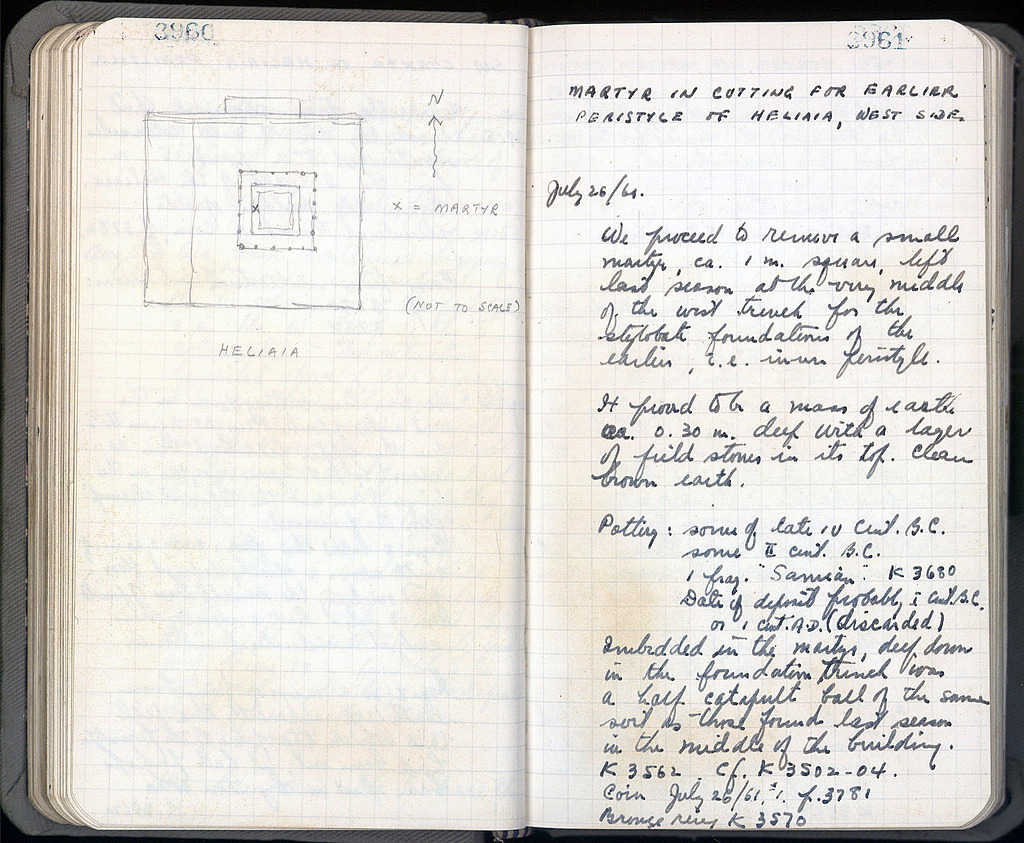 3960
N
X = MARTYR
(NOT TO SCALE)
HELIAIA
3961
MARTYR IN CUTTING FOR EARLIER
PERISTYLE OF HELIAIA, WEST SIDE.
July 26/61.
We proceed to remove a small
martyr, ca. 1 m. square, left
last season at the very middle
of the west trench for the
stylobate foundations of the
earlier, i.e. inner peristyle.
It proved to be a mass of earth
ca. 0.30 m. deep with a layer
of field stones in its top. Clean
brown earth.
Pottery: some of late IV cent. B.C.
some II cent. B.C.
1 frag. "Samian". K 3680
Date of deposit probably I cent. B.C.
or I cent. A.D. (discarded)
Imbedded in the martyr, deep down
in the foundation trench was
a half catapult ball of the same
sort as those found last season
in the middle of the building.
K 3562 Cf. K 3502-04.
Coin July 26/61, #1. p. 3781
Bronze ring K 3570